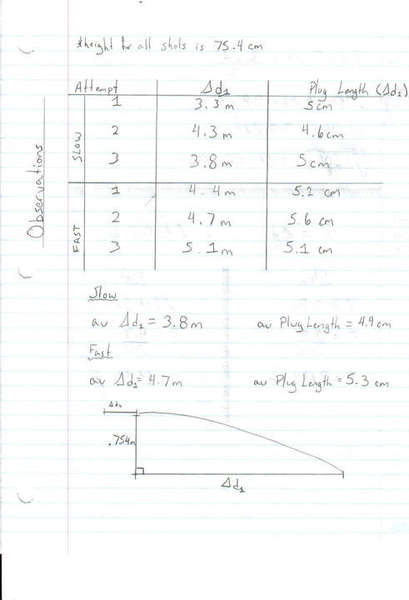 *height for all shots is 75.4 cm
Attempt Δd₁ Plug Length (Δd₂)
Observations
SLOW
1 3.3 m 5 cm
2 4.3 m 4.6 cm
3 3.8 m 5 cm
FAST
1 4.4 m 5.2 cm
2 4.7 m 5.6 cm
3 5.1 m 5.1 cm
Slow
av Δd₁ = 3.8 m av Plug Length = 4.9 cm
Fast
av Δd₁ = 4.7 m av Plug Length = 5.3 cm
Δd₂
.754m
Δd₁